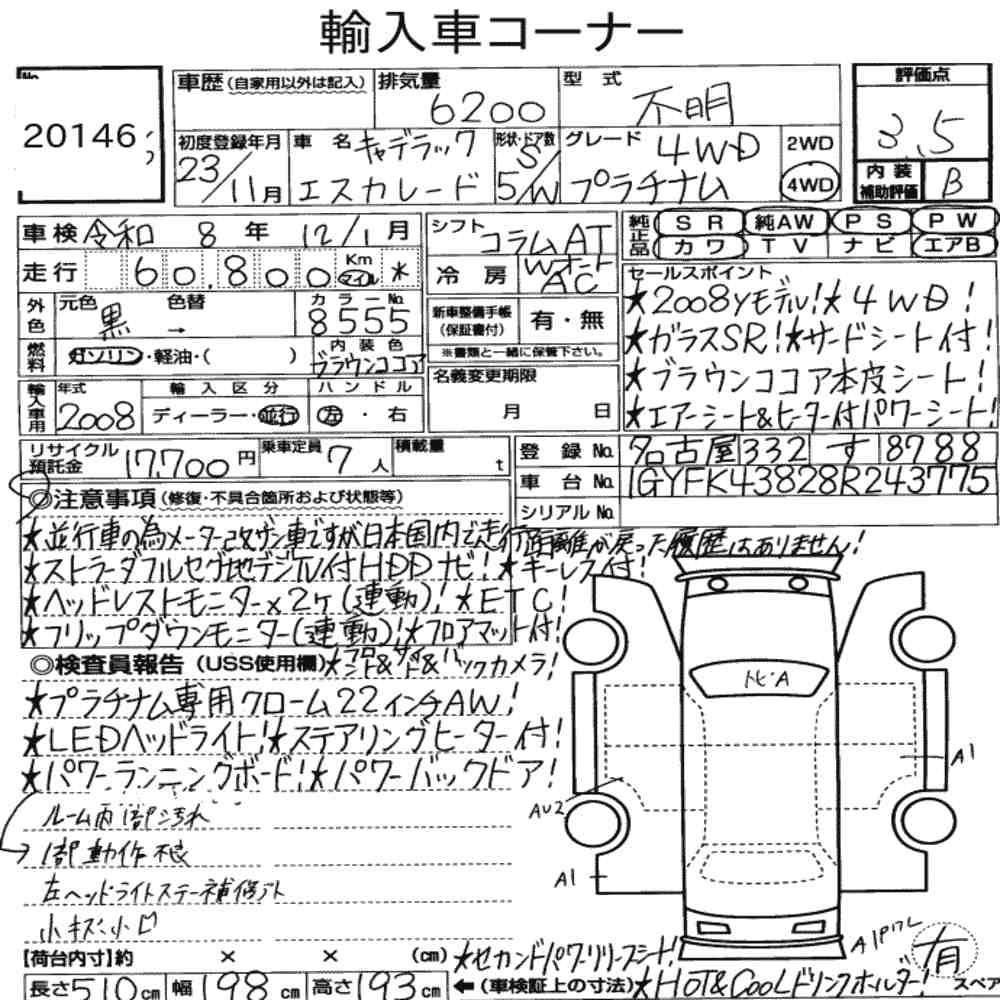 輸入車コーナー
No.
20146
車歴 (自家用以外は記入) 排気量 6200 型式 不明
評価点 3.5
初度登録年月 23/11月 車名 キャデラック エスカレード 形状・ドア数 S/5/W グレード 4WD プラチナム 2WD 4WD
内装補助評価 B
車検 令和 8年 12/1月
シフト コラムAT
純正品 SR 純AW PS PW
カワ TV ナビ エアB
走行 60,800 Km マイル *
冷房 Wオート AC
セールスポイント
★2008yモデル!★4WD!
外色 元色 黒 色替 → カラーNo. 8555
新車整備手帳(保証書付) 有・無
※書類と一緒に保管下さい。
★ガラスSR!★サードシート付!
燃料 ガソリン・軽油・( ) 内装色 ブラウンココア
★ブラウンココア本皮シート!
輸入車用 年式 2008 輸入区分 ディーラー・並行 ハンドル 左・右
名義変更期限 月 日
★エアーシート&ヒーター付パワーシート!
リサイクル預託金 17,700円 乗車定員 7人 積載量 t
登録No. 名古屋 332 す 8788
車台No. 1GYFK43828R243775
シリアルNo.
◎注意事項 (修復・不具合箇所および状態等)
★並行車の為メーター改ザン車ですが日本国内で走行距離が戻った履歴はありません!
★ストラーダフルセグ地デジTV付HDDナビ!★キーレス付!
★ヘッドレストモニター×2ヶ(連動)!★ETC!
★フリップダウンモニター(連動)!★フロアマット付!
◎検査員報告 (USS使用欄) ★フロント&サイド&バックカメラ!
★プラチナム専用クローム22インチAW!
★LEDヘッドライト!★ステアリングヒーター付!
★パワーランニングボード!★パワーバックドア!
ルーム内1部シ汚れ
1部動作不良
左ヘッドライトステー補修アト
小キズ小凹
トビA
A1
AU2
A1
A1Pワレ
有
スペア
【荷台内寸】約 × × (cm)
★セカンドパワーリリースシート!
長さ510cm 幅198cm 高さ193cm
←(車検証上の寸法)
★HOT&COOLドリンクホルダー!